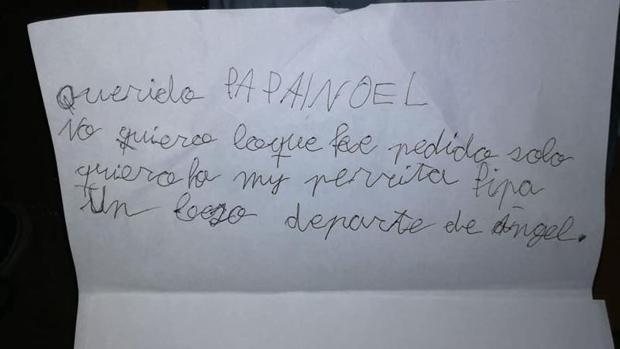 Querido PAPAINOEL
No quiero loque fae pedido solo
quiero ha my perrita pipa
Un beso departe de Ángel.